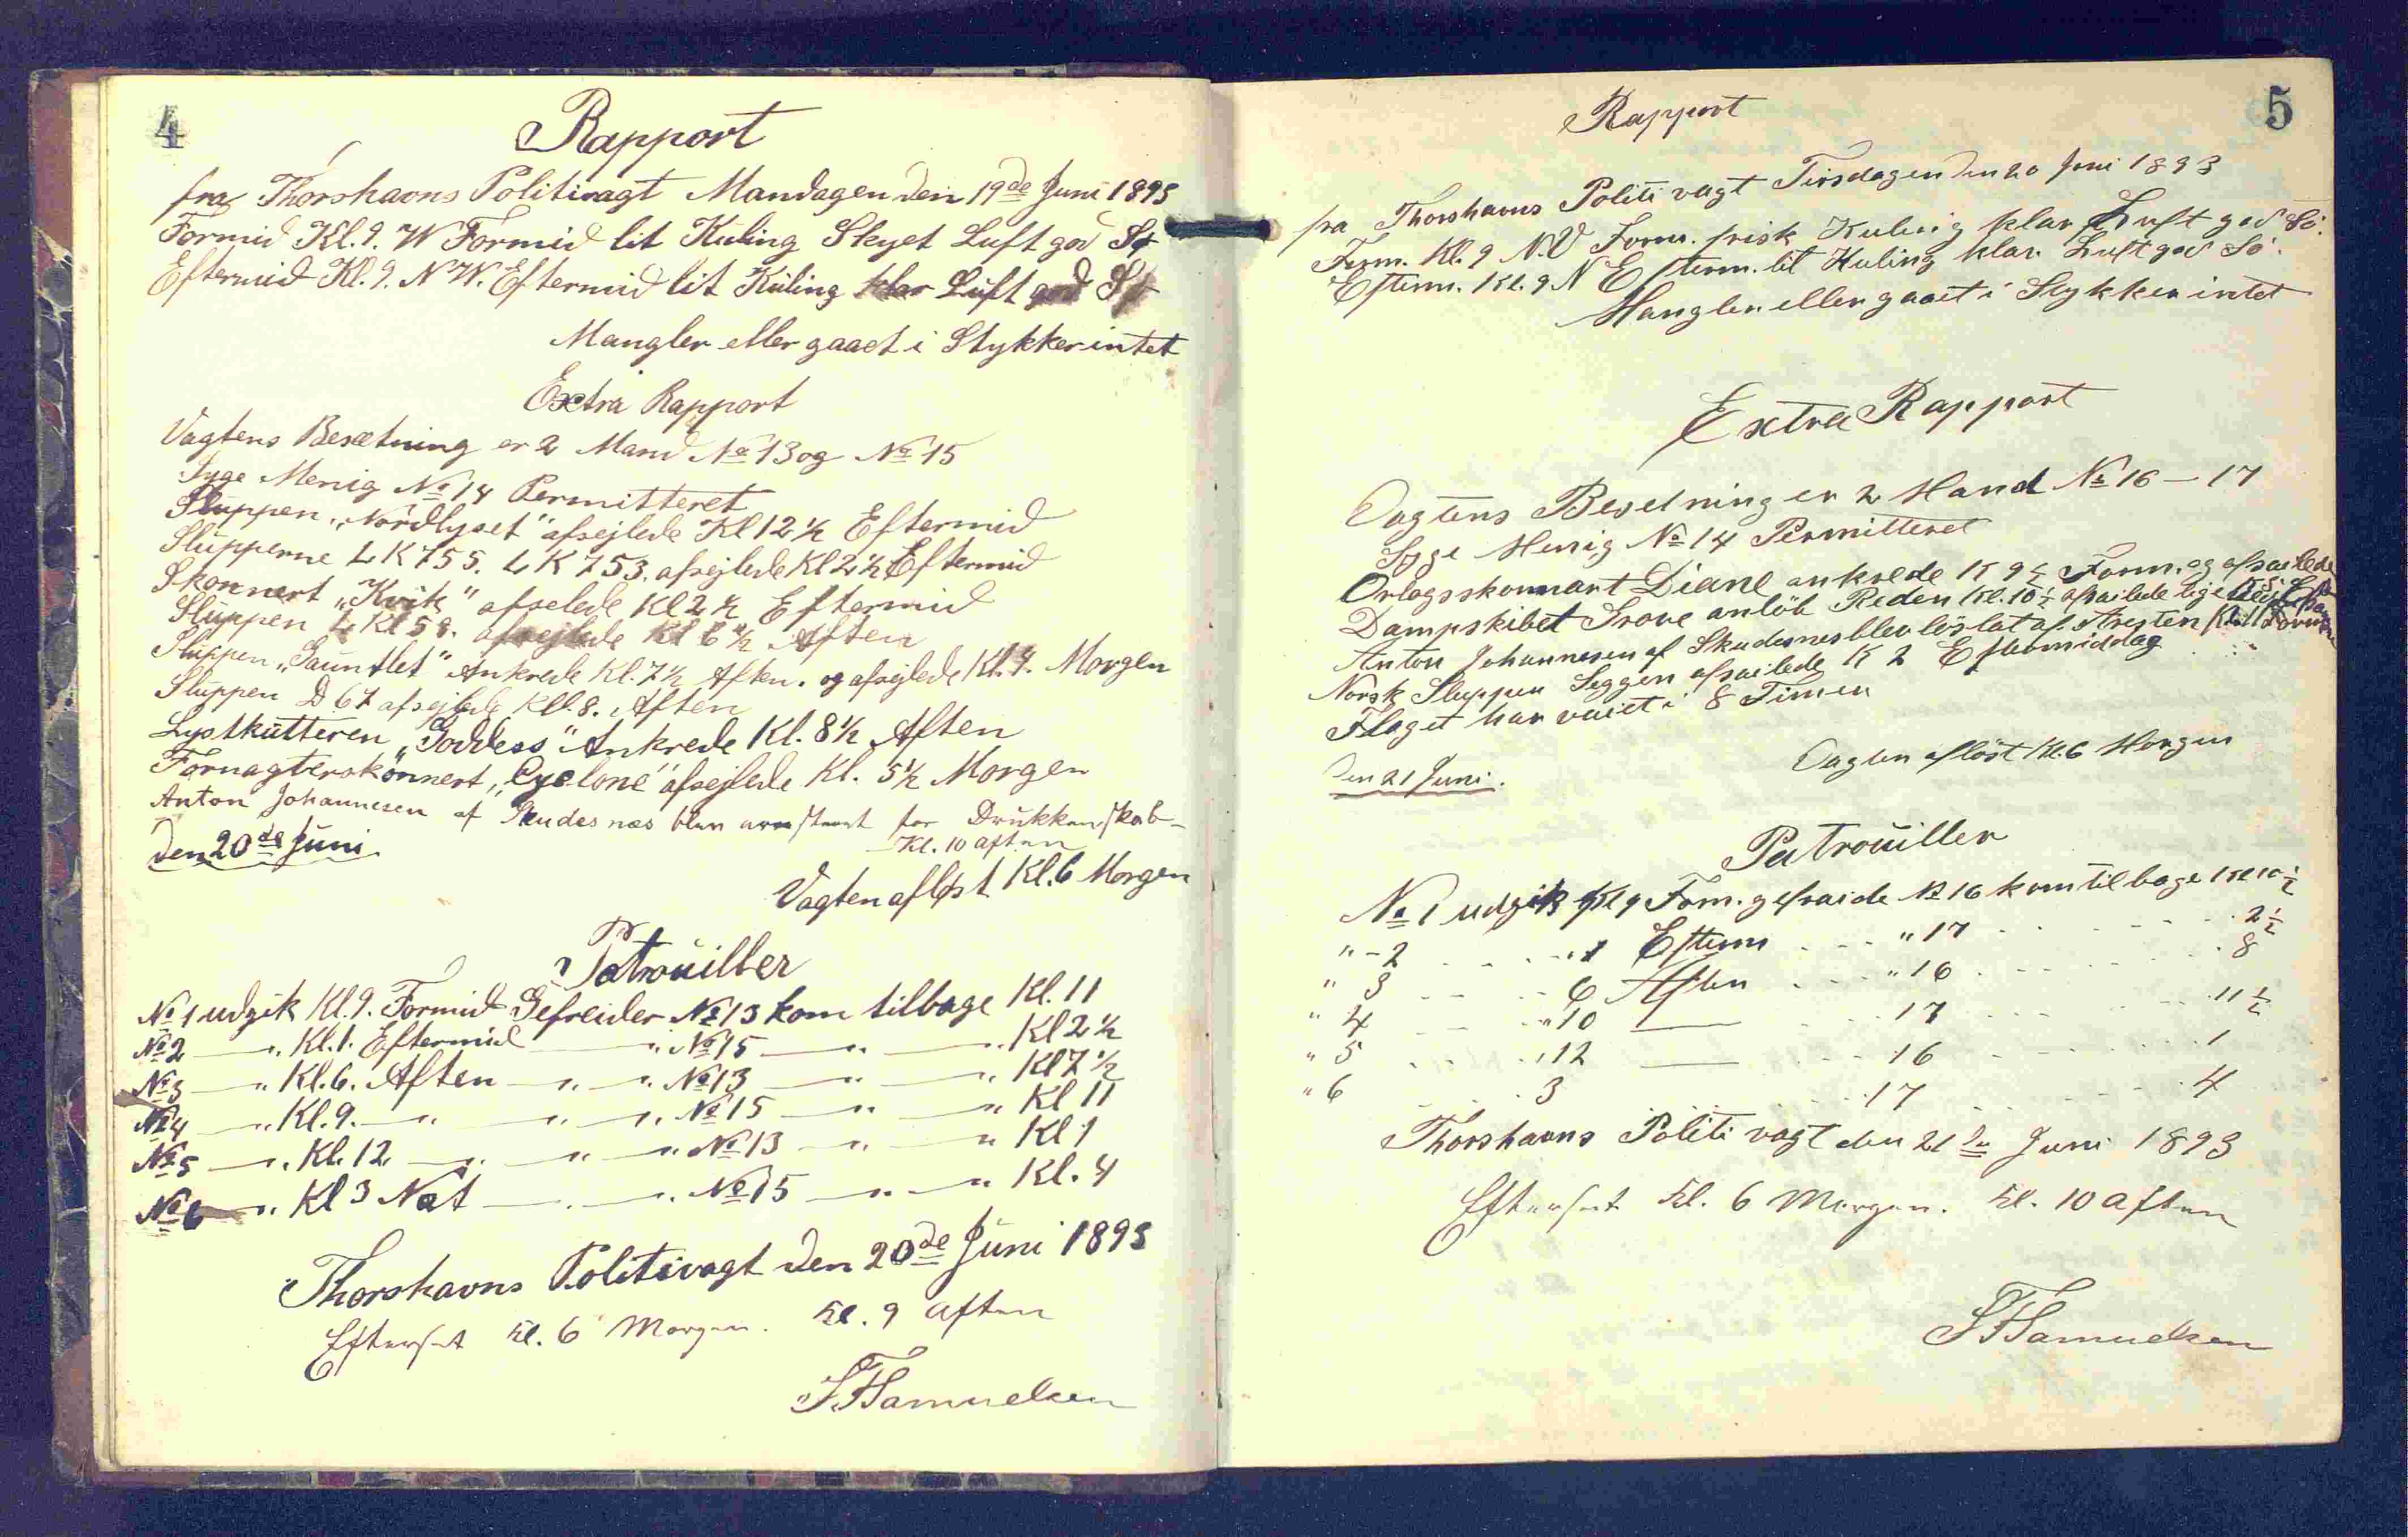 4
Rapport
fra Thorshavns Politivagt Mandagen den 19de Juni 1893
Formid Kl. 9. W Formid lit Kuling Skyet Luft god Sø
Eftermid Kl. 9. N W. Eftermid lit Kuling klar Luft god Sø
Mangler eller gaaet i Stykker intet
Extra Rapport
Vagtens Besætning er 2 Mand No 13 og No 15
Syge Menig No 14 Permitteret
Sluppen "Nordlyset" afsejlede Kl 12½ Eftermid
Slupperne LK 755. LK 753. afsejlede Kl 2½ Eftermid
Skonnert "Kvik" afselede Kl 2½ Eftermid
Sluppen afsejlede Kl 6½ Aften
Sluppen "Gauntlet" Ankrede Kl. 7½ Aften. og afsejlede Kl. 4. Morgen
Sluppen D 67 afsejlede Kll. 8. Aften
Lystkutteren "Goddess" Ankrede Kl. 8½ Aften
Fornagterskonnert, "Cyclone" afsejlede Kl. 5½ Morgen
Anton Johannesen af Skudesnæs blev arresteret for Drukkenskab
Kl. 10 aften
den 20de Juni
Vagten afløst Kl. 6 Morgen
Patrouiller
No 1 udgik Kl. 9. Formid Gefreider No 13 kom tilbage Kl. 11
No 2 — " Kl. 1. Eftermid — " No 15 — " — " Kl 2½
No 3 — " Kl. 6. Aften — " — " No 13 — " — " Kl 7½
No 4 — " Kl. 9. — " — " — " No 15 — " — " Kl 11
No 5 — " Kl. 12 — " — " — " No 13 — " — " Kl 1
No 6 — " Kl 3 Nat — " — " No 15 — " — " Kl. 4
Thorshavns Politivagt den 20de Juni 1893
Efterset Kl. 6 Morgen. Kl. 9 aften
Samuelsen
5
Rapport
fra Thorshavns Politi vagt Tirsdagen den 20 Juni 1893
Form. Kl. 9 N.V Form. frisk Kuling klar Luft god Sö.
Efterm. Kl. 9 N Efterm. lit Kuling klar Luft god Sö.
Mangler eller gaaet i Stykker intet
Extra Rapport
Vagtens Besetning er 2 Mand No 16 — 17
Syge Menig No 14 Permitteret
Orlogsskonnart Diane ankrede Form. og afsailede
Dampskibet anlöb Reden Kl. 10½ afsailede
Anton Johannesen af Skudesnes blev löslat af Aresten Kl. 11 Form
Norsk Sluppen Seggen afsailede K 2 Eftermiddag
Flaget har vaiet i 8 Timer
Vagten aflöst Kl. 6 Morgen
den 21 Juni.
Patrouiller
No 1 udgik Kl 9 Form. gefraide No 16 kom tilbage Kl 10½
" - 2 . . . . " 1 Efterm . . . " 17 . . . . . 2½
" 3 . . . . 6 Aften . . . " 16 . . . . . 8
" 4 . . . . " 10 — . . . 17 . . . . . 11½
" 5 . . . . " 12 — . . . 16 . . . . . 1
" 6 . . . . 3 . . . 17 . . . . . 4
Thorshavns Politi vagt den 21de Juni 1893
Efterset Kl. 6 Morgen. Kl. 10 aften
Samuelsen